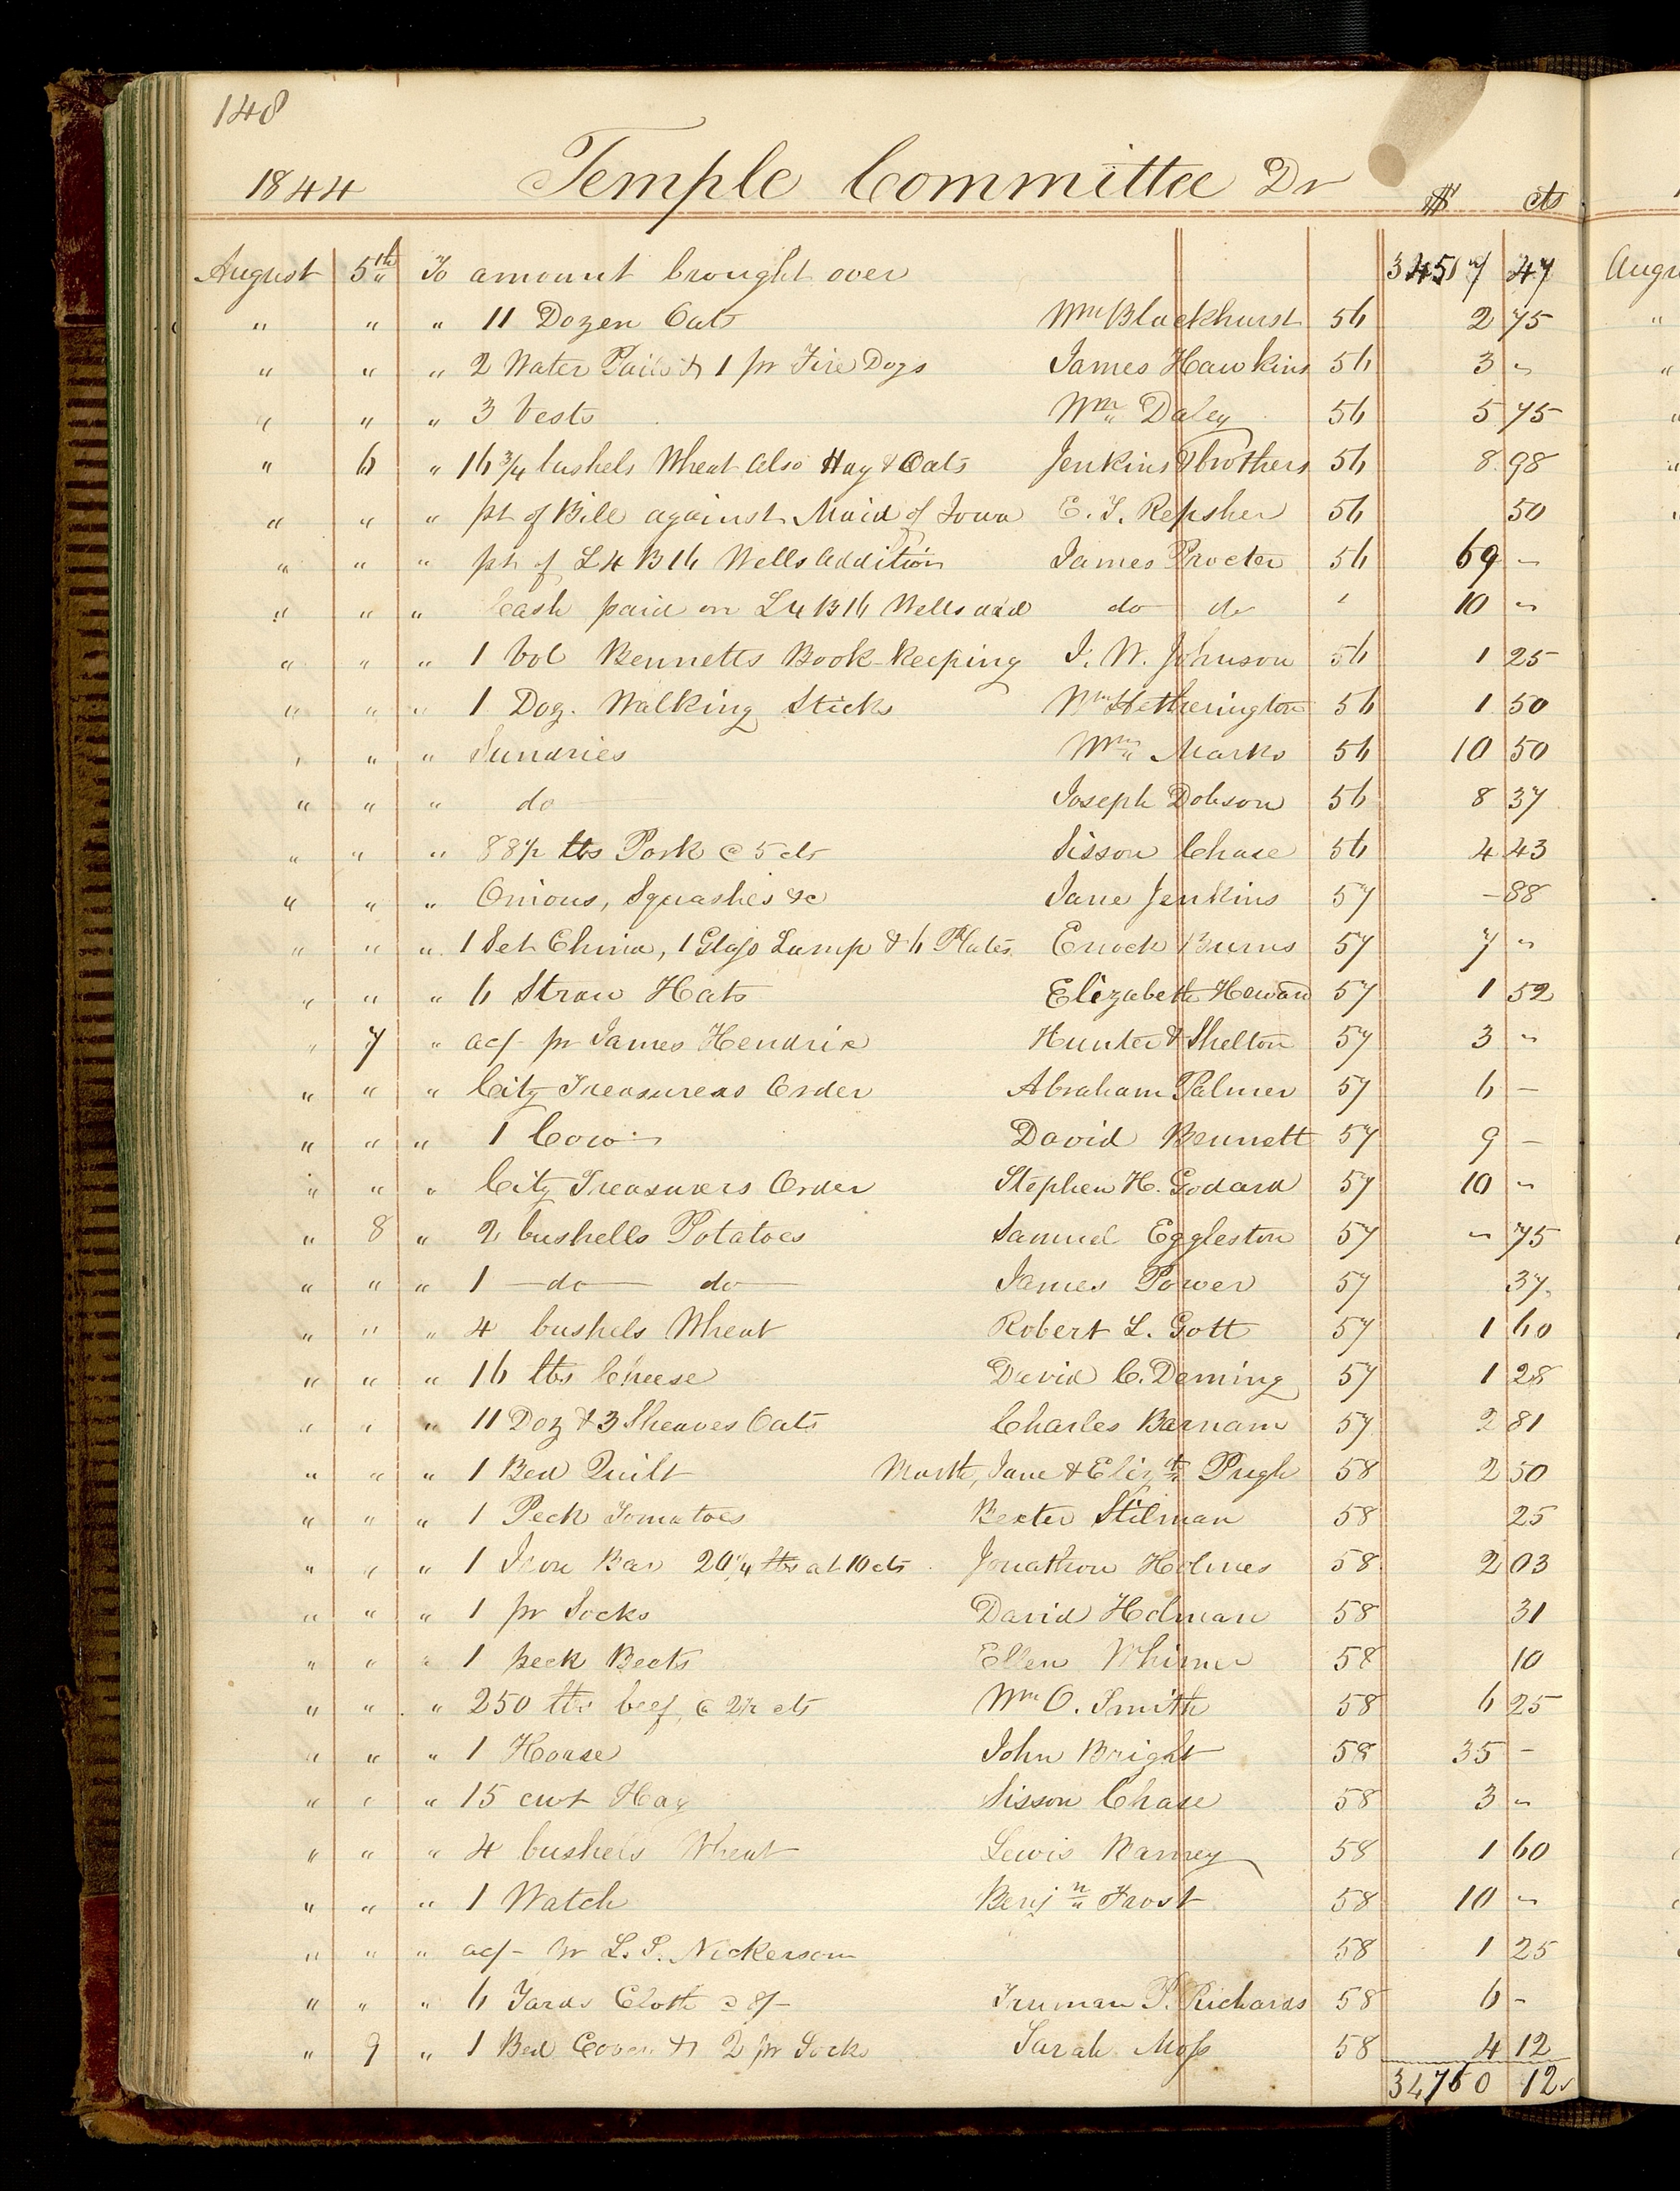 148
1844 Temple Committee Dr $ cts
August 5th To amount brought over 34517 47
" " " 11 Dozen Oats Wm Blackhurst 56 2 75
" " " 2 Water Pails & 1 pr Fire Dogs James Hawkins 56 3 "
" " " 3 Vests Wm Daley 56 5 75
" 6 " 16 3/4 bushels Wheat also Hay & Oats Jenkins Brothers 56 8 98
" " " pt of Bill against Maid of Iowa E. T. Repsher 56 50
" " " pt of L4 B16 Wells addition James Procter 56 69 "
" " " Cash paid on L4 B16 Wells add do do " 10 "
" " " 1 Vol Bennetts Book-Keeping J. W. Johnson 56 1 25
" " " 1 Doz. Walking Sticks Wm Hetherington 56 1 50
" " " Sundries Wm Marks 56 10 50
" " " do Joseph Dobson 56 8 37
" " " 88 1/2 lbs Pork @ 5 cts Sisson Chase 56 4 43
" " " Onions, Squashes &c Jane Jenkins 57 - 88
" " " 1 Set China, 1 Glass Lamp & 6 Plates Enoch Burns 57 7 "
" " " 6 Straw Hats Elizabeth Howard 57 1 52
" 7 " ac/- pr James Hendrix Hunter & Shelton 57 3 "
" " " City Treasurers Order Abraham Palmer 57 6 -
" " " 1 Cow David Bennett 57 9 -
" " " City Treasurers Order Stephen H. Godard 57 10 "
" 8 " 2 bushells Potatoes Samuel Eggleston 57 " 75
" " " 1 do do James Power 57 37
" " " 4 bushels Wheat Robert L. Gott 57 1 60
" " " 16 lbs Cheese David C. Deming 57 1 28
" " " 11 Doz & 3 Sheaves Oats Charles Barnam 57 2 81
" " " 1 Bed Quilt Marth, Jane & Elizth Pugh 58 2 50
" " " 1 Peck Tomatoes Dexter Stilman 58 25
" " " 1 Iron Bar 20 1/4 lbs at 10 cts Jonathon Holmes 58 2 03
" " " 1 pr Socks David Holman 58 31
" " " 1 peck Beets Ellen 58 10
" " " 250 lbs beef, @ 2 1/2 cts Wm O. Smith 58 6 25
" " " 1 Horse John Bright 58 35 -
" " " 15 cwt Hay Sisson Chase 58 3 "
" " " 4 bushels Wheat Lewis 58 1 60
" " " 1 Watch Benjn Frost 58 10 "
" " " ac/- pr L. P. Nickerson 58 1 25
" " " 6 Yards Cloth @ 8/- Truman P. Richards 58 6 -
" 9 " 1 Bed Cover & 2 pr Socks Sarah Moss 58 4 12
34760 12